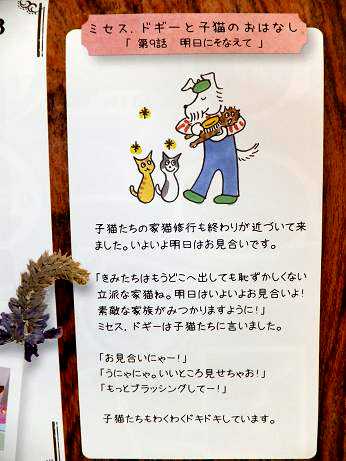 ミセス．ドギーと子猫のおはなし
「 第9話　明日にそなえて 」
子猫たちの家猫修行も終わりが近づいて来
ました。いよいよ明日はお見合いです。
「きみたちはもうどこへ出しても恥ずかしくない
立派な家猫ね。明日はいよいよお見合いよ！
素敵な家族がみつかりますように！」
ミセス．ドギーは子猫たちに言いました。
「お見合いにゃー！」
「うにゃにゃ。いいところ見せちゃお！」
「もっとブラッシングしてー！」
子猫たちもわくわくドキドキしています。